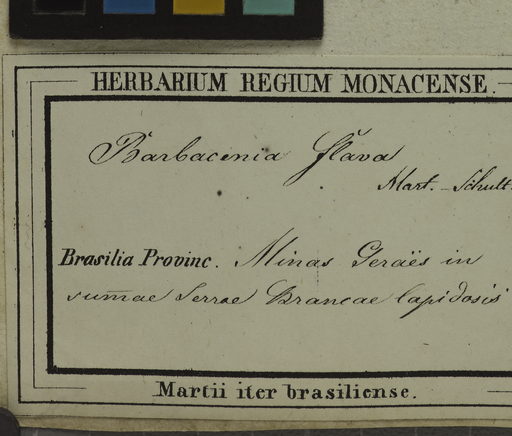 HERBARIUM REGIUM MONACENSE.
Barbacenia flava
Mart. - Schult.
Brasilia Provinc. Minas Geraës in
sum̄ae Serrae Brancae lapidosis
Martii iter brasiliense.